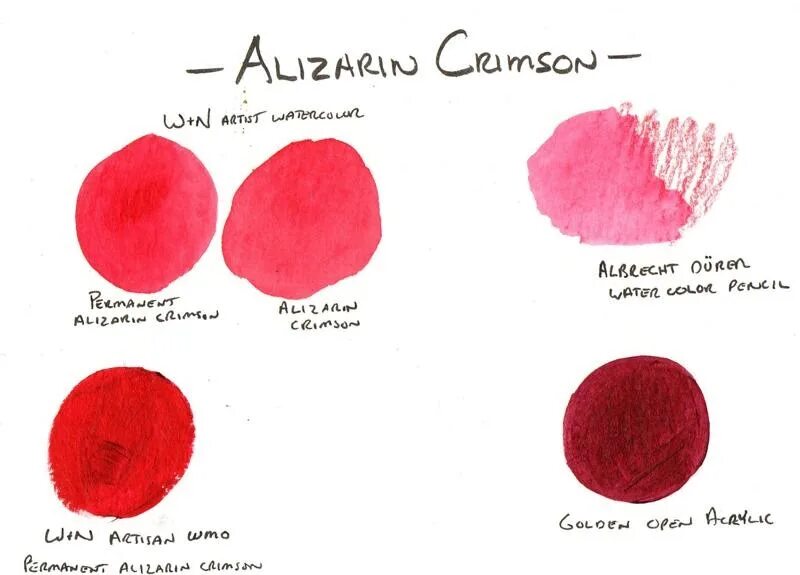 — ALIZARIN CRIMSON —
W+N ARTIST WATERCOLOR
PERMANENT
ALIZARIN CRIMSON
ALIZARIN
CRIMSON
ALBRECHT DÜRER
WATERCOLOR PENCIL
W+N ARTISAN WMO
PERMANENT ALIZARIN CRIMSON
GOLDEN OPEN ACRYLIC